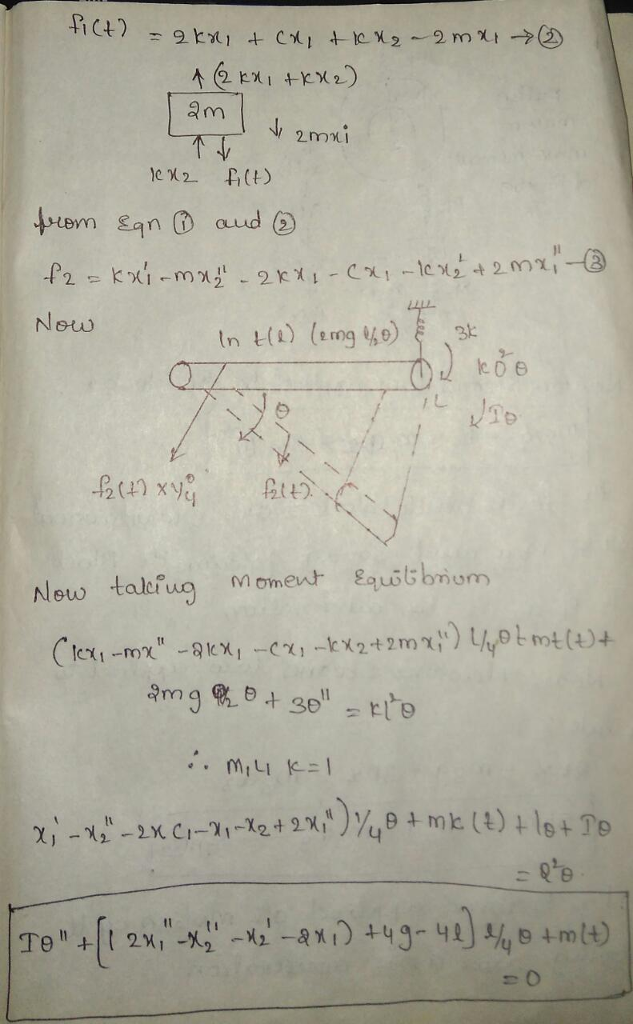 f₁(t) = 2kx₁ + cx₁ + kx₂ - 2mx₁ → ②
↑ (2kx₁ + kx₂)
2m
↓ 2mxi
↑ ↓
kx₂ f₁(t)
from Eqn ① and ②
f₂ = kx₁' - mx₂'' - 2kx₁ - cx₁ - kx₂' + 2mx₁'' - ③
Now
In t(l) (2mg l/₂θ)
3k
θ
L
f₂(t) x
f₂(t)
Now taking moment Equilibrium
(kx₁ - mx'' - 2kx₁ - cx₁ - kx₂ + 2mx₁'') L/4 θ + mt(t) +
2mg θ + 3θ'' = kl²θ
∴ m, L, k = 1
x₁' - x₂'' - 2x c₁ - x₁ - x₂ + 2x₁'') 1/4 θ + mk (t) + lθ + Iθ
= l²θ
Iθ'' + [( 2x₁'' - x₂'' - x₂' - 2x₁) + 4g - 4l] l/4 θ + m(t)
= 0